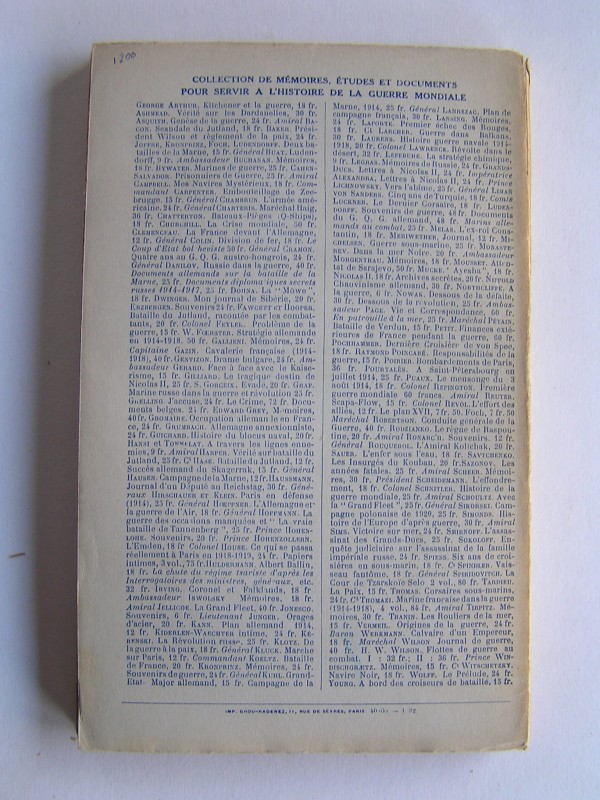 1200
COLLECTION DE MÉMOIRES, ÉTUDES ET DOCUMENTS
POUR SERVIR A L'HISTOIRE DE LA GUERRE MONDIALE
GEORGE ARTHUR. Kitchener et la guerre, 18 fr.
ASHMEAD. Vérité sur les Dardanelles, 30 fr.
ASQUITH. Genèse de la guerre, 24 fr. Amiral BA-
CON. Scandale du Jutland, 18 fr. BAKER. Prési-
dent Wilson et règlement de la paix, 24 fr.
JOFFRE, KRONPRINZ, FOCH, LUDENDORFF. Deux ba-
tailles de la Marne, 15 fr. Général BUAT. Luden-
dorff, 9 fr. Ambassadeur BUCHANAN. Mémoires,
18 fr. BYWATER. Marines de guerre, 25 fr. CAHEN-
SALVADOR. Prisonniers de Guerre, 25 fr. Amiral
CAMPBELL. Mes Navires Mystérieux, 18 fr. Com-
mandant CARPENTER. Embouteillage de Zee-
brugge. 15 fr. Général CHAMBRUN. L'armée amé-
ricaine. 24 fr. Général CHARTERIS. Maréchal Haig,
36 fr. CHATTERTON. Bateaux-Pièges (Q-Ships),
18 fr. CHURCHILL. La Crise mondiale, 50 fr.
CLEMENCEAU. La France devant l'Allemagne,
12 fr. Général COLIN. Division de fer, 18 fr. Le
Coup d'Etat bolcheviste 50 fr. Général CRAMON.
Quatre ans au G. Q. G. austro-hongrois, 24 fr.
Général DANILOV. Russie dans la guerre, 40 fr.
Documents allemands sur la bataille de la
Marne, 25 fr. Documents diplomatiques secrets
russes 1914-1917, 25 fr. DOHNA. La "Möwe",
18 fr. DWINGER. Mon journal de Sibérie, 20 fr.
ERZBERGER. Souvenirs 24 fr. FAWCETT et HOOPER.
Bataille du Jutland, racontée par les combat-
tants, 20 fr. Colonel FEYLER. Problème de la
guerre, 15 fr. W. FŒRSTER. Stratégie allemande
en 1914-1918. 50 fr. GALLIENI. Mémoires, 24 fr.
Capitaine GAZIN. Cavalerie française (1914-
1918), 40 fr. GENTIZON. Drame bulgare, 24 fr. Am-
bassadeur GERARD. Face à face avec le Kaise-
risme, 15 fr. GILLIARD. Le tragique destin de
Nicolas II, 25 fr. S. GORGEIX. Evadé, 20 fr. GRAF.
Marine russe dans la guerre et révolution 25 fr.
GRELLING. J'accuse, 24 fr. Le Crime, 72 fr. Docu-
ments belges. 24 fr. EDWARD GREY, Mémoires,
40 fr. GROMAIRE. Occupation allemande en Fran-
ce, 24 fr. GRUMBACH. Allemagne annexionniste,
24 fr. GUICHARD. Histoire du blocus naval, 20 fr.
HANSI et TONNELAT. A travers les lignes enne-
mies, 9 fr. Amiral HARPER. Vérité sur bataille du
Jutland, 25 fr. Ct HASE. Bataille du Jutland, 12 fr.
Succès allemand du Skagerrak, 15 fr. Général
HAUSEN. Campagne de la Marne, 12 fr. HAUSSMANN.
Journal d'un Député au Reichstag, 30 fr. Géné-
raux HIRSCHAUER et KLEIN. Paris en défense
(1914), 25 fr. Général HOEPPNER. L'Allemagne et
la guerre de l'Air, 18 fr. Général HOFFMANN. La
guerre des occasions manquées et "La vraie
bataille de Tannenberg", 25 fr. Prince HOHEN-
LOHE. Souvenirs. 20 fr. Prince HOHENZOLLERN.
L'Emden, 18 fr. Colonel HOUSE. Ce qui se passa
réellement à Paris en 1918-1919, 24 fr. Papiers
intimes, 3 vol., 75 fr. HULDERMANN. Albert Ballin,
18 fr. La chute du régime tsariste d'après les
Interrogatoires des ministres, généraux, etc.
32 fr. IRVING. Coronel et Falklands, 18 fr.
Ambassadeur ISWOLSKY Mémoires, 18 fr.
Amiral JELLICOE. La Grand Fleet, 40 fr. JONESCO.
Souvenirs, 6 fr. Lieutenant JUNGER. Orages
d'acier, 20 fr. KANN. Plan allemand 1914,
12 fr. KIDERLEN-WAECHTER intime, 24 fr. KÉ-
RENSKI. La Révolution russe, 25 fr. KLOTZ. De
la guerre à la paix, 18 fr. Général KLUCK. Marche
sur Paris, 12 fr. Commandant KŒLTZ. Bataille
de France, 20 fr. KRONPRINZ. Mémoires, 24 fr.
Souvenirs de guerre, 24 fr. Général KUHL. Grand-
Etat-Major allemand, 15 fr. Campagne de la
Marne, 1914, 25 fr. Général LANREZAC. Plan de
campagne français, 30 fr. LANSING. Mémoires,
24 fr. LAPORTE. Premier échec des Rouges,
18 fr. Ct LARCHER. Guerre dans Balkans,
30 fr. LAURENS. Histoire guerre navale 1914-
1918, 20 fr. Colonel LAWRENCE. Révolte dans le
désert, 32 fr. LEFEBURE. La stratégie chimique,
9 fr. LEGRAS. Mémoires de Russie, 24 fr. GRANDS-
DUCS. Lettres à Nicolas II, 24 fr. Impératrice
ALEXANDRA, Lettres à Nicolas II, 24 fr. Prince
LICHNOWSKY. Vers l'abîme. 25 fr. Général LIMAN
VON SANDERS. Cinq ans de Turquie, 18 fr. Comte
LUCKNER. Le Dernier Corsaire, 18 fr. LUDEN-
DORFF. Souvenirs de guerre, 48 fr. Documents
du G. Q. G. allemand, 48 fr. Marins alle-
mands au combat, 25 fr. MELAS. L'ex-roi Cons-
tantin, 18 fr. MERIWETHER. Journal, 12 fr. MI-
CHELSEN. Guerre sous-marine, 25 fr. MONASTE-
REV. Dans la mer Noire. 20 fr. Ambassadeur
MORGENTHAU. Mémoires, 18 fr. MOUSSET. Atten-
tat de Sarajevo, 50 fr. MUCKE. "Ayesha", 18 fr.
NICOLAS II. 18 fr. Archives secrètes, 20 fr. NIPPOLD
Chauvinisme allemand, 30 fr. NORTHCLIFFE. A
la guerre, 6 fr. NOWAK. Dessous de la défaite,
30 fr. Dessous de la révolution, 25 fr. Ambas-
sadeur PAGE. Vie et Correspondance, 60 fr.
En patrouille à la mer, 25 fr. Maréchal PÉTAIN.
Bataille de Verdun, 15 fr. PETIT. Finances exté-
rieures de France pendant la guerre, 60 fr.
POCHHAMMER. Dernière Croisière de von Spee,
18 fr. RAYMOND POINCARÉ. Responsabilités de la
guerre, 15 fr. POIRIER. Bombardements de Paris,
36 fr. POURTALÈS. A Saint-Pétersbourg en
juillet 1914, 25 fr. PUAUX. Le mensonge du 3
août 1914, 18 fr. Colonel REPINGTON. Première
guerre mondiale 60 francs. Amiral REUTER.
Scapa-Flow, 15 fr. Colonel REVOL. L'effort des
alliés, 12 fr. Le plan XVII, 7 fr. 50. Foch, 7 fr. 50
Maréchal ROBERTSON. Conduite générale de la
Guerre, 40 fr. RODZIANKO. Le règne de Raspou-
tine, 20 fr. Amiral RONARC'H. Souvenirs. 12 fr.
Général ROUQUEROL. L'Amiral Koltchak, 20 fr.
SAUER. L'enfer sous l'eau, 18 fr. SAVTCHENKO.
Les Insurgés du Kouban, 20 fr. SAZONOV. Les
années fatales. 25 fr. Amiral SCHEER. Mémoi-
res, 30 fr. Président SCHEIDEMANN. L'effondre-
ment, 18 fr. Colonel SCHNITLER. Histoire de la
guerre mondiale, 25 fr. Amiral SCHOULTZ. Avec
la "Grand Fleet", 25 fr. Général SIKORSKI. Cam-
pagne polonaise de 1920, 25 fr. SIMONDS. His-
toire de l'Europe d'après guerre, 30 fr. Amiral
SIMS. Victoire sur mer, 24 fr. SMIRNOFF. L'assas-
sinat des Grands-Ducs, 25 fr. SOKOLOFF. En-
quête judiciaire sur l'assassinat de la famille
impériale russe. 24 fr. SPIESS. Six ans de croi-
sières en sous-marin, 18 fr. Ct SPINDLER. Vais-
seau fantôme, 18 fr. Général SPIRIDOVITCH. La
Cour de Tzarskoïe Selo 2 vol., 80 fr. TARDIEU.
La Paix, 15 fr. THOMAS. Corsaires sous-marins,
24 fr. Ct THOMAZI. Marine française dans la guerre
(1914-1918), 4 vol., 84 fr. Amiral TIRPITZ. Mé-
moires, 30 fr. THANIN. Les Rouliers de la mer,
15 fr. VERMEIL. Origines de la guerre, 24 fr.
Baron WERKMANN. Calvaire d'un Empereur,
18 fr. Maréchal WILSON Journal de guerre,
40 fr. H. W. WILSON. Flottes de guerre au
combat. I : 32 fr. ; II : 36 fr. Prince WIN-
DISCHGRÆTZ. Mémoires, 15 fr. Ct WITSCHETZKY.
Navire Noir, 18 fr. WOLFF. Le Prélude, 24 fr.
YOUNG. A bord des croiseurs de bataille, 15 fr.
11, RUE DE SÈVRES, PARIS